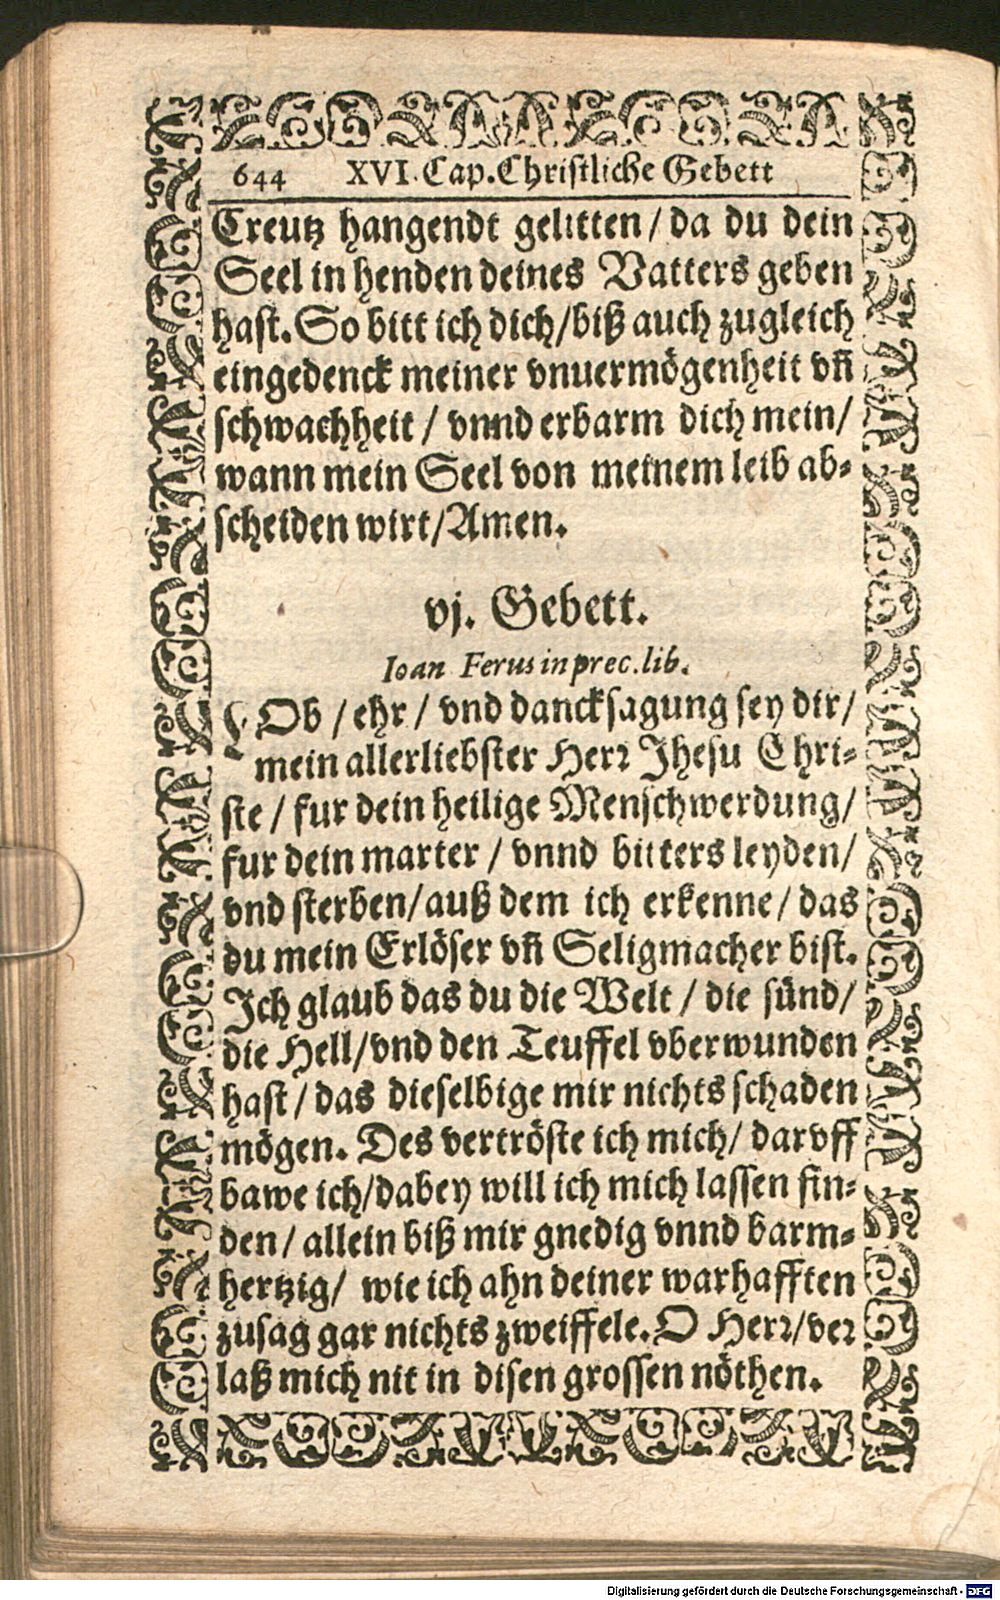 644 XVI. Cap. Christliche Gebett
Creutz hangendt gelitten / da du dein
Seel in henden deines Vatters geben
hast. So bitt ich dich/biß auch zugleich
eingedenck meiner vnuermögenheit vñ
schwachheit / vnnd erbarm dich mein/
wann mein Seel von meinem leib ab-
scheiden wirt/Amen.
vj. Gebett.
Ioan Ferus in prec. lib.
LOb / ehr / vnd dancksagung sey dir/
mein allerliebster Herr Jhesu Chri-
ste / fur dein heilige Menschwerdung/
fur dein marter / vnnd bitters leyden/
vnd sterben/auß dem ich erkenne/ das
du mein Erlöser vñ Seligmacher bist.
Ich glaub das du die Welt / die sünd/
die Hell/vnd den Teuffel vberwunden
hast/ das dieselbige mir nichts schaden
mögen. Des vertröste ich mich/ darvff
bawe ich/dabey will ich mich lassen fin-
den/ allein biß mir gnedig vnnd barm-
hertzig/ wie ich ahn deiner warhafften
zusag gar nichts zweiffele. O Herr/ver
laß mich nit in disen grossen nöthen.
Digitalisierung gefördert durch die Deutsche Forschungsgemeinschaft - DFG